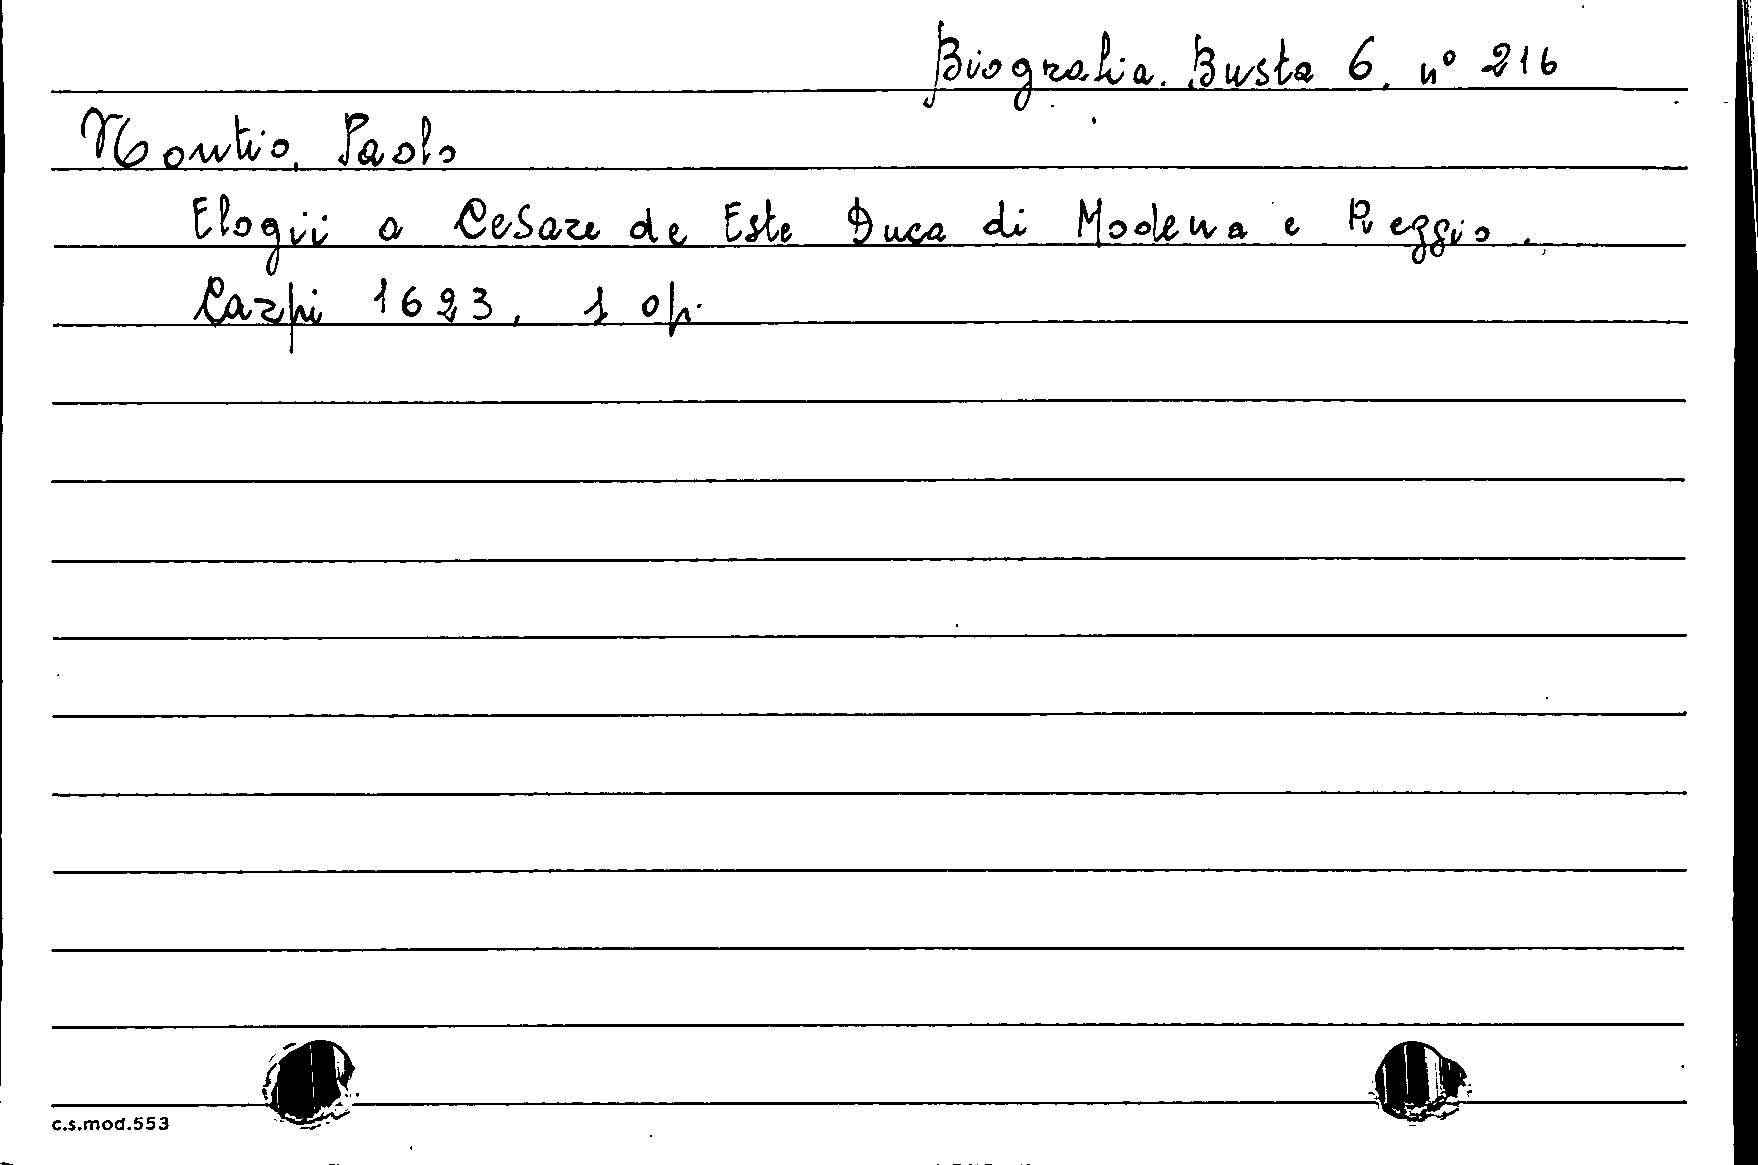 Biografia. Busta 6, n° 216
Montio, Paolo
Elogii a Cesare de Este Duca di Modena e Reggio.
Carpi 1623, 1 op.
c.s.mod.553